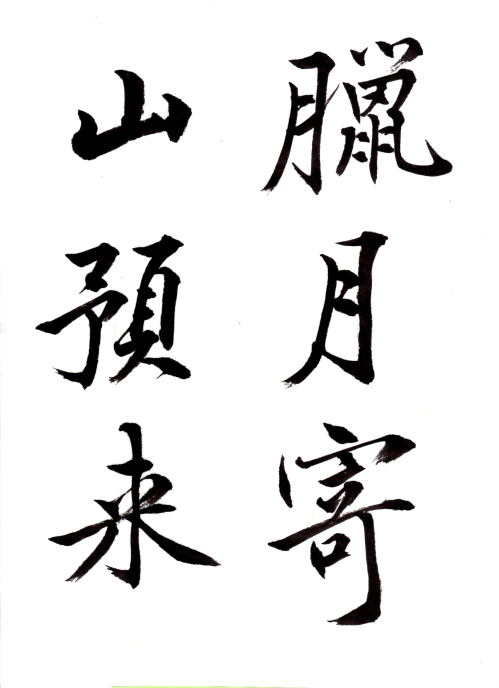 臘月寄
山預来